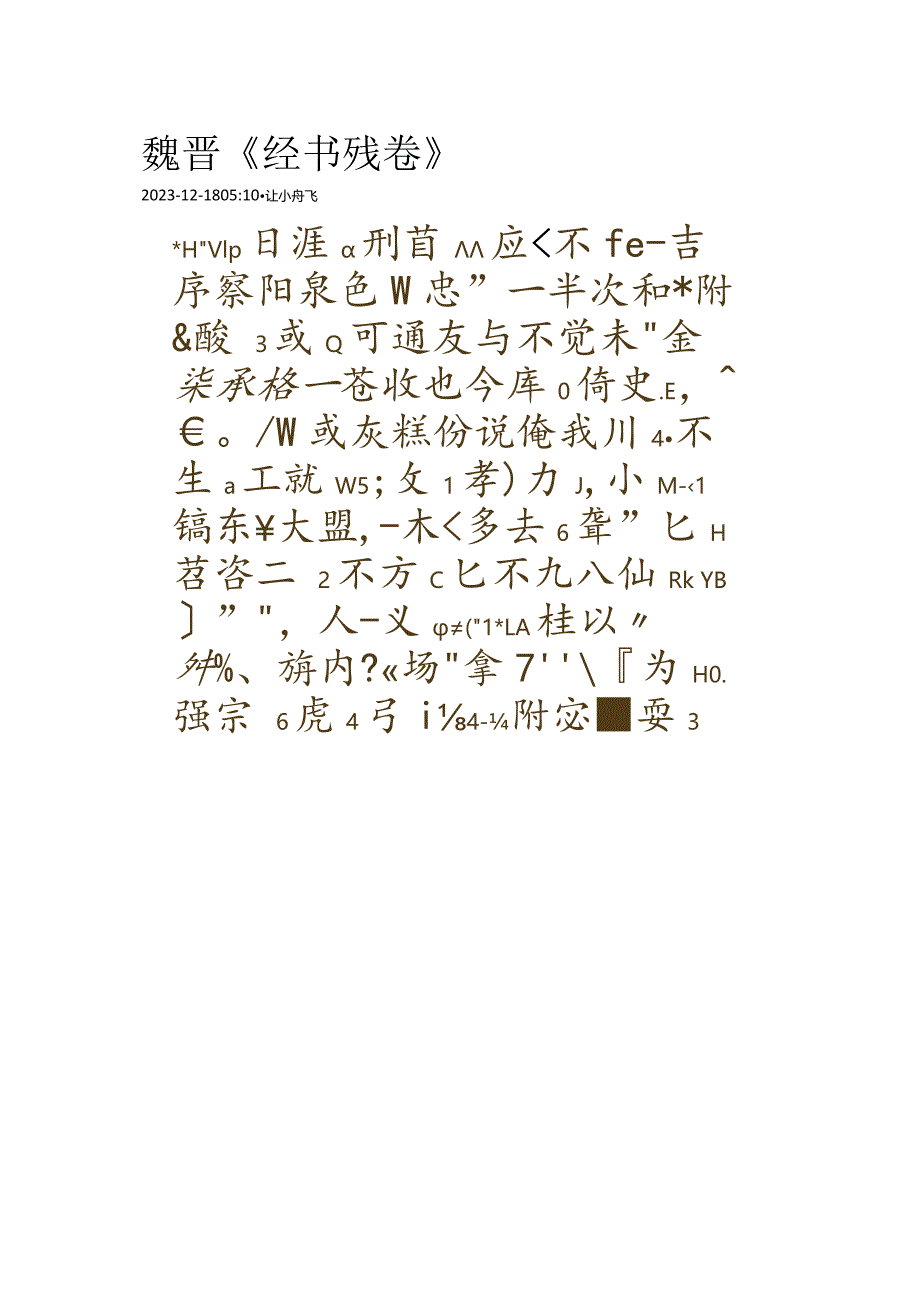 魏晋《经书残卷》
2023-12-1805:10•让小舟飞
*H"Vlp 日涯 α 刑首 ΛΛ 应<不 fe-吉
序察阳泉色 W 忠”一半次和*附
&酸 3 或 Q 可通友与不觉未"金
柒承格一苍收也今库 0 倚史.E，^
€。/W 或灰糕份说俺我川 4•不
生 a 工就 W5;攵 1 孝)力 J,小 M-‹1
镐东¥大盟,-木<多去 6 聋”匕 H
苕咨二 2 不方 C 匕不九八仙 Rk YB
〕”"，人-义 φ≠("1*LA 桂以〃
%、旃内?«场"拿 7''\『为 H0.
强宗 6 虎 4 弓 i⅛4-¼附宓■耍 3